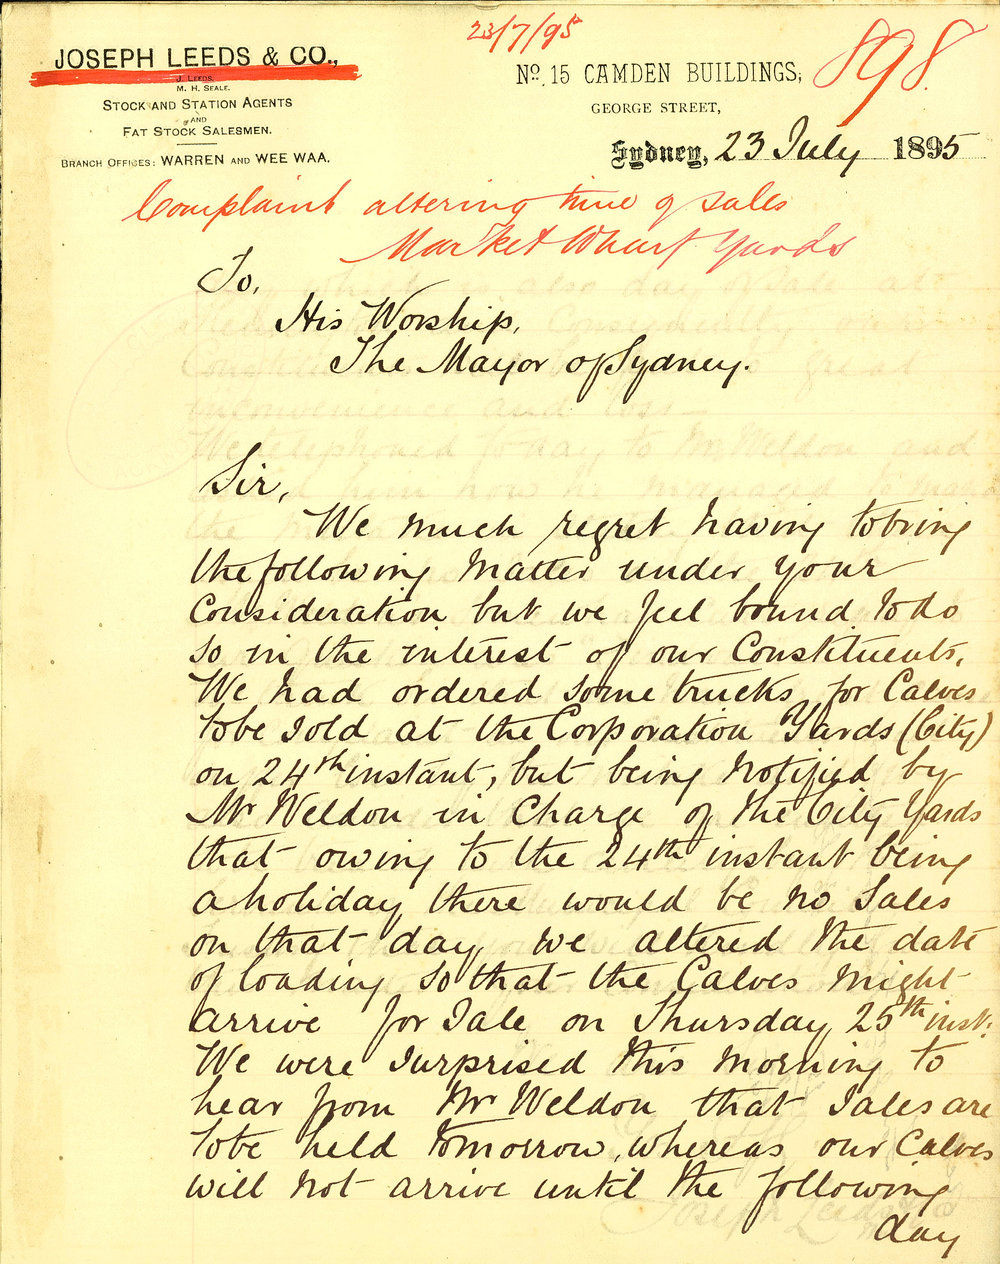 23/7/95
898.
JOSEPH LEEDS & CO.,
J. LEEDS.
M. H. SEALE.
STOCK AND STATION AGENTS
AND
FAT STOCK SALESMEN.
BRANCH OFFICES: WARREN AND WEE WAA.
No. 15 CAMDEN BUILDINGS,
GEORGE STREET,
Sydney, 23 July 1895
Complaint altering time of sales
Market Wharf Yards
To,
His Worship,
The Mayor of Sydney.
Sir,
We much regret having to bring
the following matter under your
Consideration but we feel bound to do
so in the interest of our Constituents.
We had ordered some trucks for Calves
to be sold at the Corporation Yards (City)
on 24th instant, but being notified by
Mr Weldon in Charge of the City Yards
that owing to the 24th instant being
a holiday there would be no Sales
on that day we altered the date
of loading so that the Calves might
arrive for Sale on Thursday 25th inst.
We were surprised this morning to
hear from Mr Weldon that Sales are
to be held tomorrow, whereas our Calves
will not arrive until the following
day